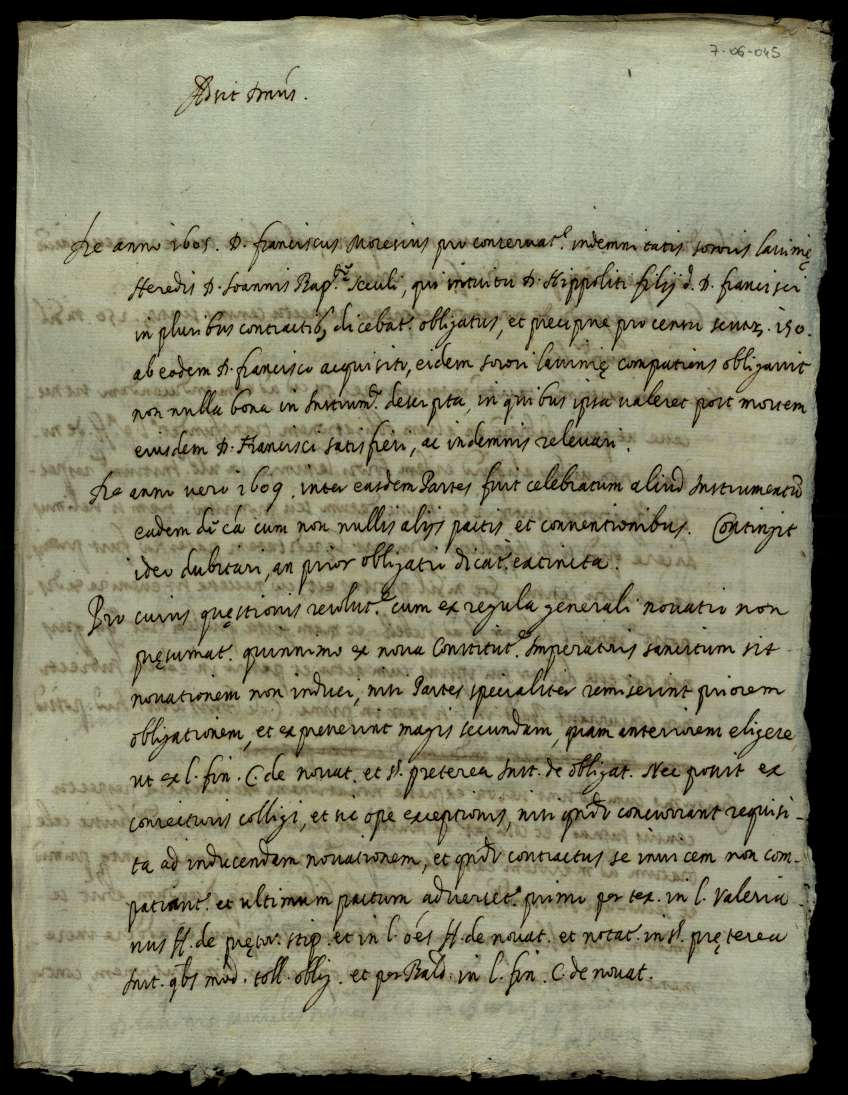 7-06-045
Adsit Dnús.
De anno 1605. D. Franciscus Moresius pro conservat.e indemnitatis sororis Lavinię
Heredis D. Ioannis Bap.tę Sculi, qui intuitu D. Hippoliti filij d. D. Francisci
in pluribus contractib9 dicebat.r obligatus, et precipue pro censu scutor. 150.
ab eodem D. Francisco acquisito, eidem sorori Lavinię compatiens obligavit
non nulla bona in Instrum.to descripta, in quibus ipsa valeret post mortem
eiusdem D. Francisci satisfieri, ac indemnis relevari.
De anno vero 1609. inter easdem Partes fuit celebratum aliud Instrumentũ
eadem dẽ cá cum non nullis alijs pactis et conventionibus. Contingit
ideo dubitari, an prior obligatio dicat.r extincta.
Pro cuius quęstionis resolut.e cum ex regula generali novatio non
pręsumat.r quinnimo ex nova Constitut.e Imperatoris sancitum sit
novationem non induci, nisi Partes specialiter remiserint priorem
obligationem, et expresserint magis secundam, quam anteriorem eligere,
ut ex l. fin. C. de novat. et §. preterea Inst. de obligat. Nec possit ex
coniecturis colligi, et sic ope exceptionis, nisi qndó concurrant requisi-
ta ad inducendam novationem, et qndó contractus se invicem non com-
patiant.r et ultimum pactum adverset.r primo per tex. in l. Valeria
nus ff. de prętor. stip. et in l. oẽs ff. de novat. et notat. in §. pręterea
Inst. qbs mod. toll. oblig. et per Bald. in l. fin. C. de novat.